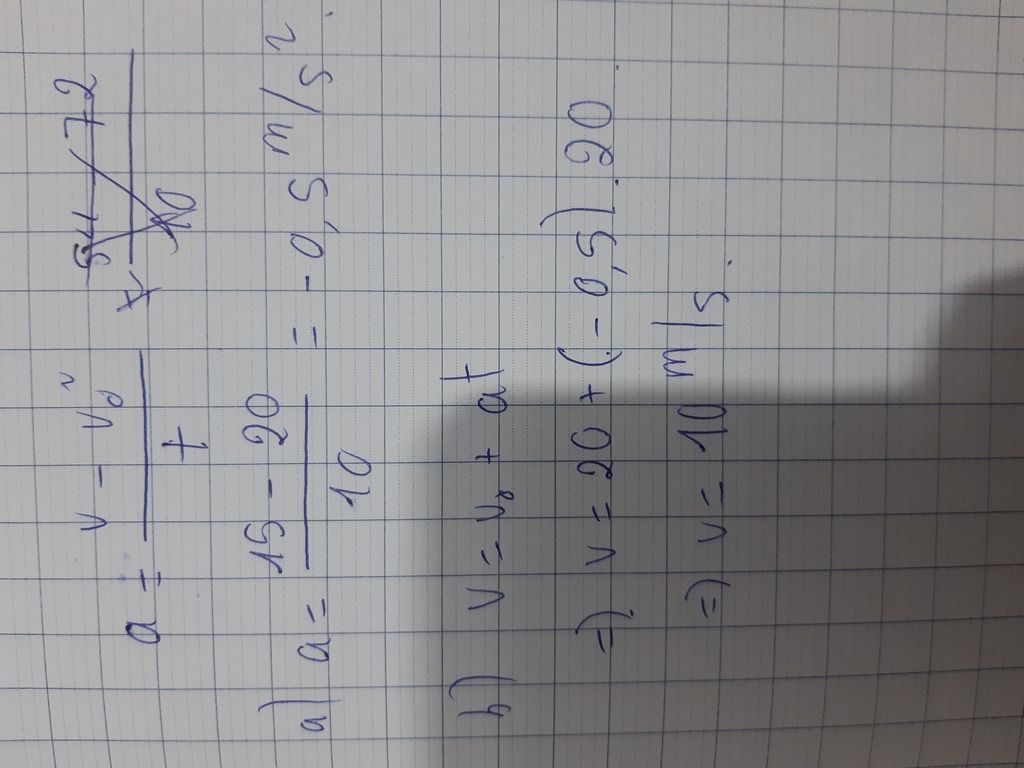 a = (v - v₀²) / t = (54 - 72) / 10
a) a = (15 - 20) / 10 = - 0,5 m/s²
b) v = v₀ + at
=) v = 20 + (- 0,5). 20.
=) v = 10 m/s.